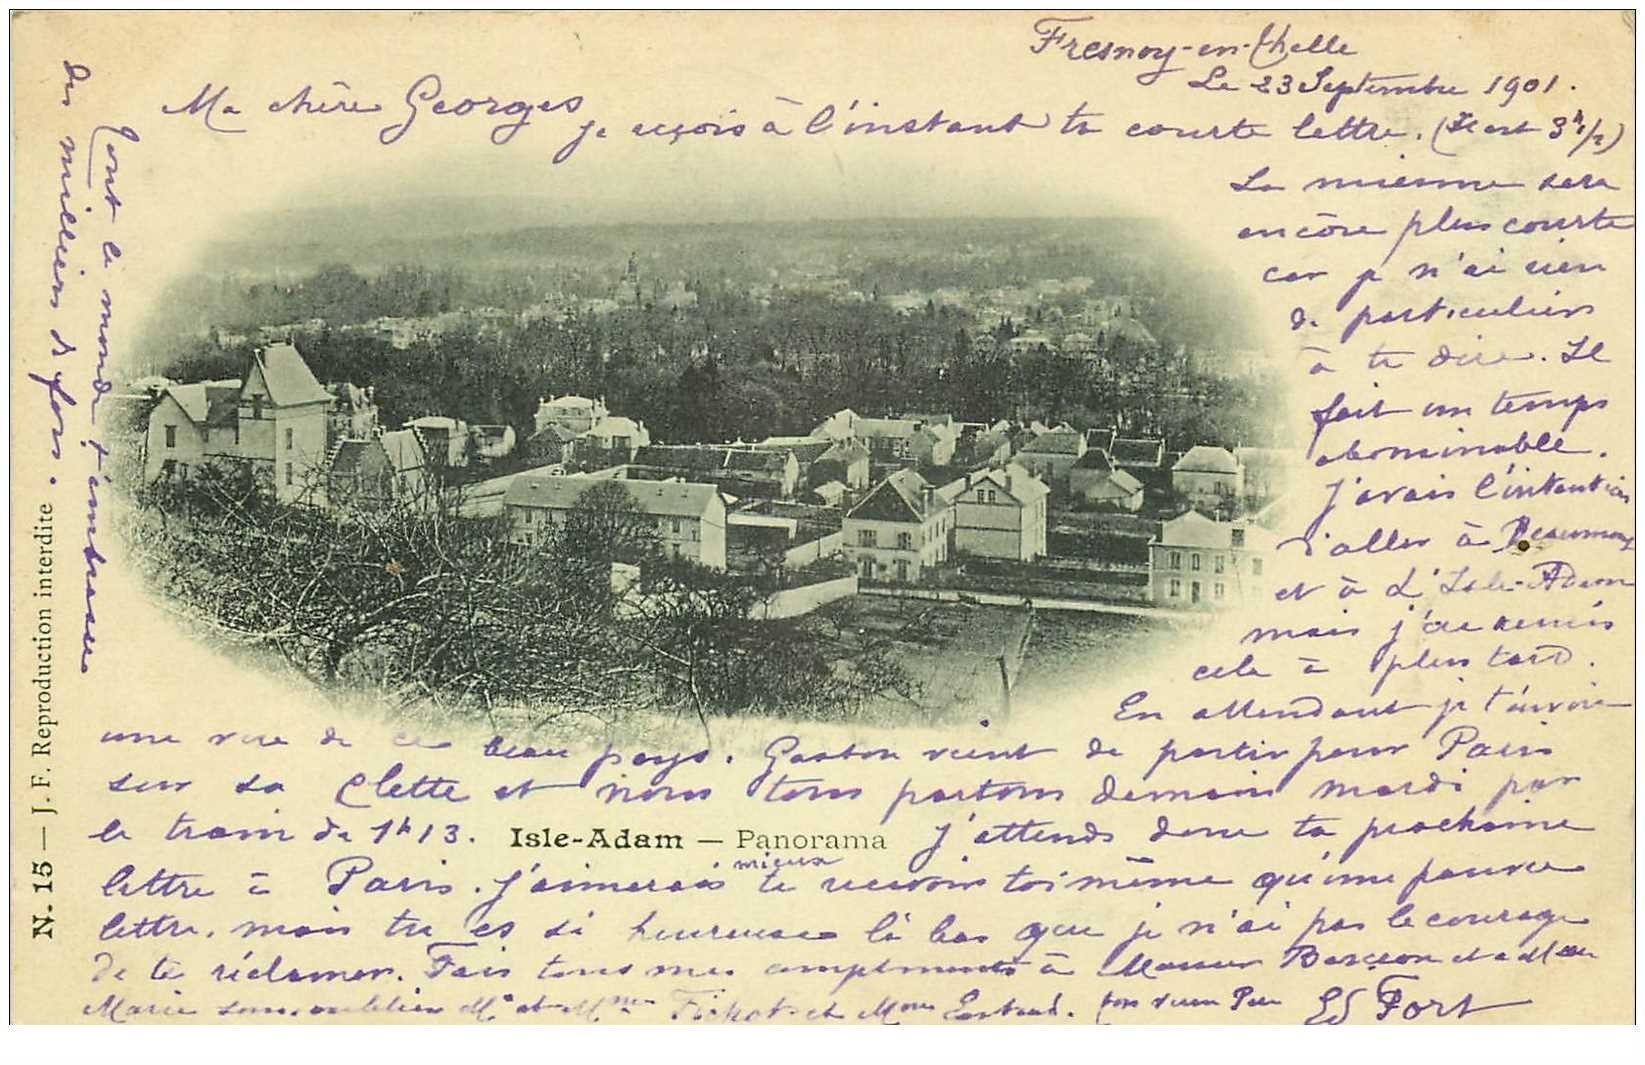 Fresnoy-en-Chelle
Le 23 Septembre 1901.
Ma chère Georges
je reçois à l'instant ta courte lettre. (Il est 3h 1/2)
La mienne sera
encore plus courte
car je n'ai rien
de particulier
à te dire. Il
fait un temps
abominable.
J'avais l'intention
d'aller à Beaumont
et à L'Isle-Adam
mais j'ai remis
cela à plus tard.
En attendant je t'envoie
une vue de ce beau pays. Gaston vient de partir pour Paris
sur sa Clette et nous tous partons demain mardi par
le train de 1h13.
Isle-Adam — Panorama
J'attends donc ta prochaine
lettre à Paris. J'aimerais mieux te recevoir toi même qu'une pauvre
lettre, mais tu es si heureuse là bas que je n'ai pas le courage
de te réclamer. Fais tous mes compliments à et à Mme
Marie sans oublier Mr et Mme et Mme ton vieux Père Ed Fort
Tout le monde t'embrasse
des milliers de fois.
N. 15 — J. F. Reproduction interdite